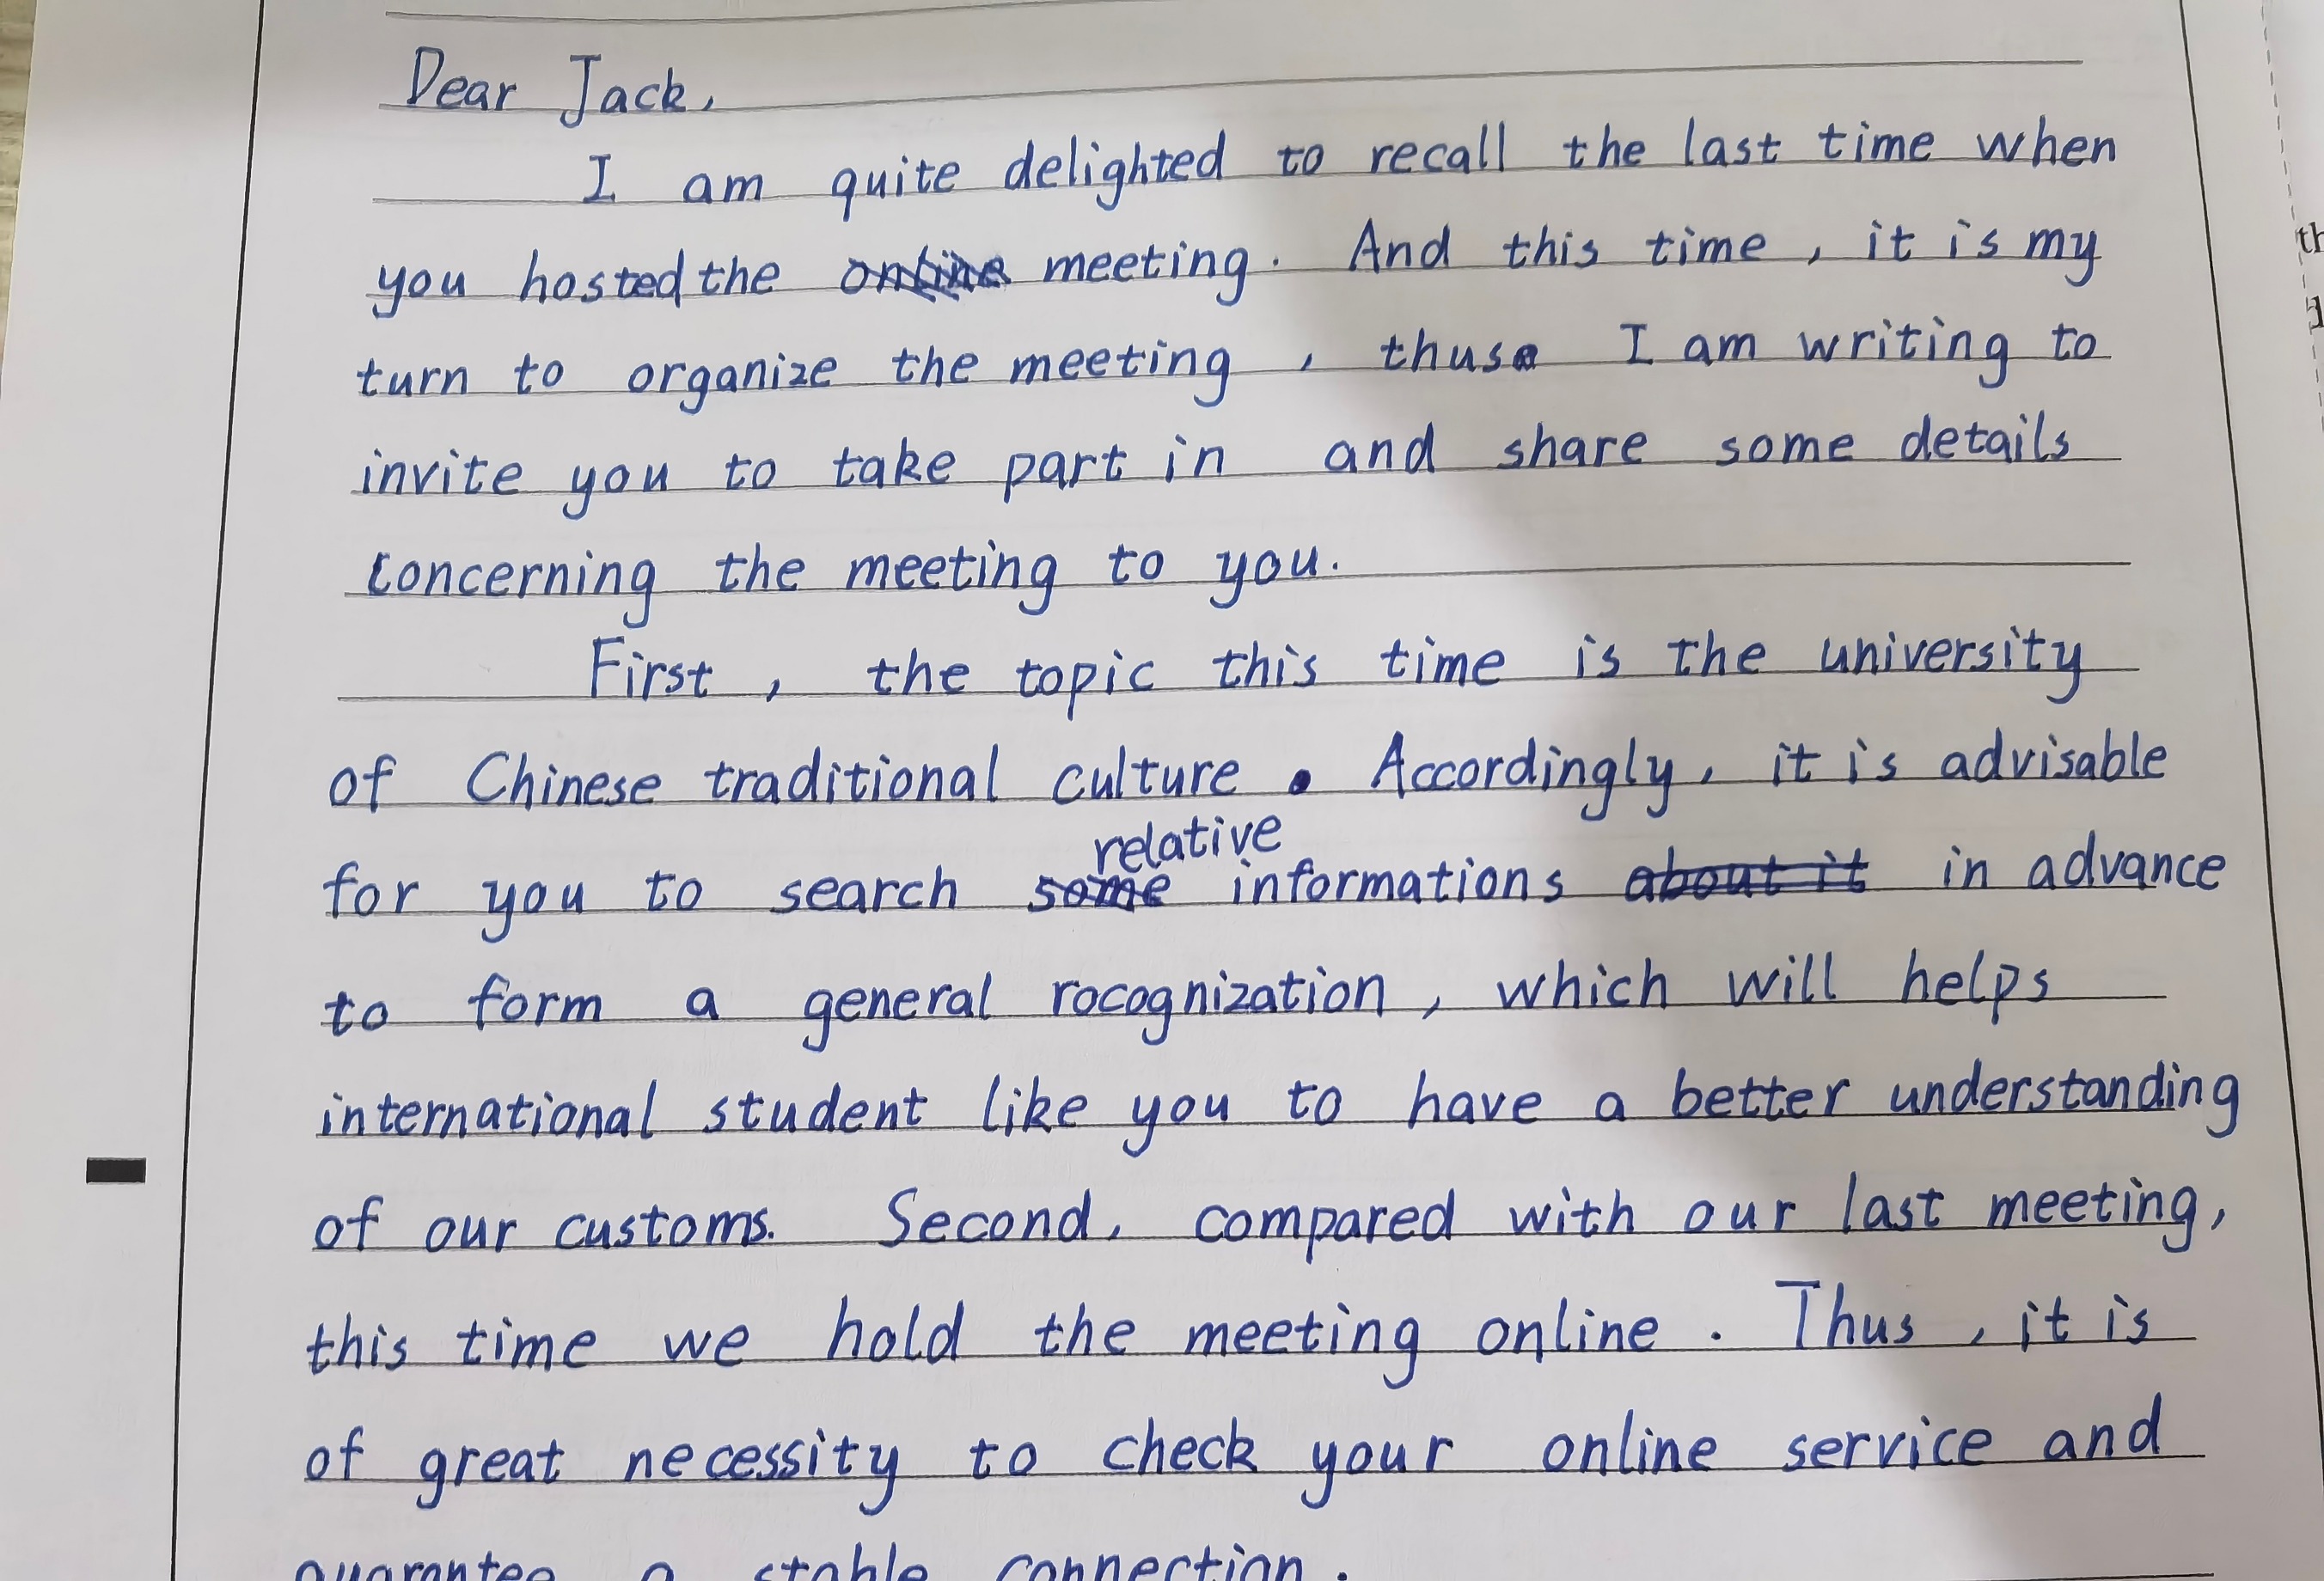 Dear Jack,
I am quite delighted to recall the last time when
you hosted the meeting. And this time, it is my
turn to organize the meeting, thus I am writing to
invite you to take part in and share some details
concerning the meeting to you.
First, the topic this time is the university
of Chinese traditional culture. Accordingly, it is advisable
relative
for you to search informations in advance
to form a general rocognization, which will helps
international student like you to have a better understanding
of our customs. Second, compared with our last meeting,
this time we hold the meeting online. Thus, it is
of great necessity to check your online service and
guarantee a stable connection.